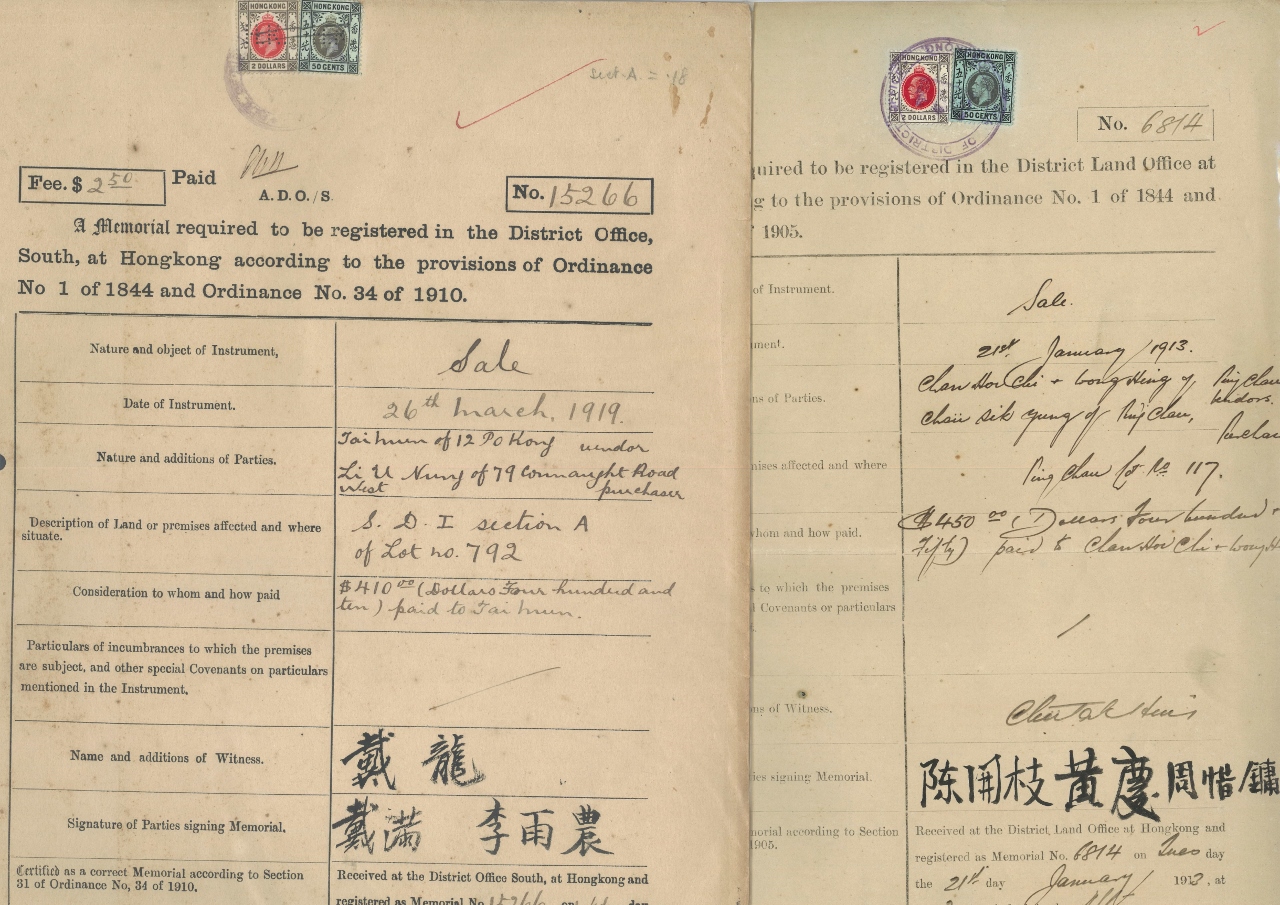 HONGKONG HONGKONG
2 DOLLARS 50 CENTS
Sect. A = .18
Fee. $ 2.50. Paid
A.D.O./S.
No. 15266
A Memorial required to be registered in the District Office,
South, at Hongkong according to the provisions of Ordinance
No 1 of 1844 and Ordinance No. 34 of 1910.
Nature and object of Instrument,
Sale
Date of Instrument.
26th March, 1919.
Nature and additions of Parties.
of 12 Po Kong vendor
Li U Nung of 79 Connaught Road
West purchaser
Description of Land or premises affected and where
situate.
S. D. I section A
of Lot no. 792
Consideration to whom and how paid
$410.00 (Dollars Four hundred and
ten) paid to
Particulars of incumbrances to which the premises
are subject, and other special Covenants on particulars
mentioned in the Instrument.
Name and additions of Witness.
戴龍
Signature of Parties signing Memorial.
戴滿 李雨農
Certified as a correct Memorial according to Section
31 of Ordinance No, 34 of 1910.
Received at the District Office South, at Hongkong and
registered as Memorial No 15266 on day
HONGKONG HONGKONG
2 DOLLARS 50 CENTS
OF DISTRICT
No. 6814
quired to be registered in the District Land Office at
g to the provisions of Ordinance No. 1 of 1844 and
1905.
of Instrument.
Sale.
ment.
21st January 1913.
ns of Parties.
Chan Hoi Chi + Wong Hing of Ping Chau
vendors.
of Ping Chau,
mises affected and where
Ping Chau Lot No 117.
whom and how paid.
$450.00 (Dollars Four hundred +
Fifty) paid to Chan Hoi Chi + Wong H
s to which the premises
l Covenants or particulars
ns of Witness.
ies signing Memorial.
陈開枝 黃慶 周惜鏞
morial according to Section
1905.
Received at the District Land Office at Hongkong and
registered as Memorial No. 6814 on Tues day
the 21st day January 1913, at